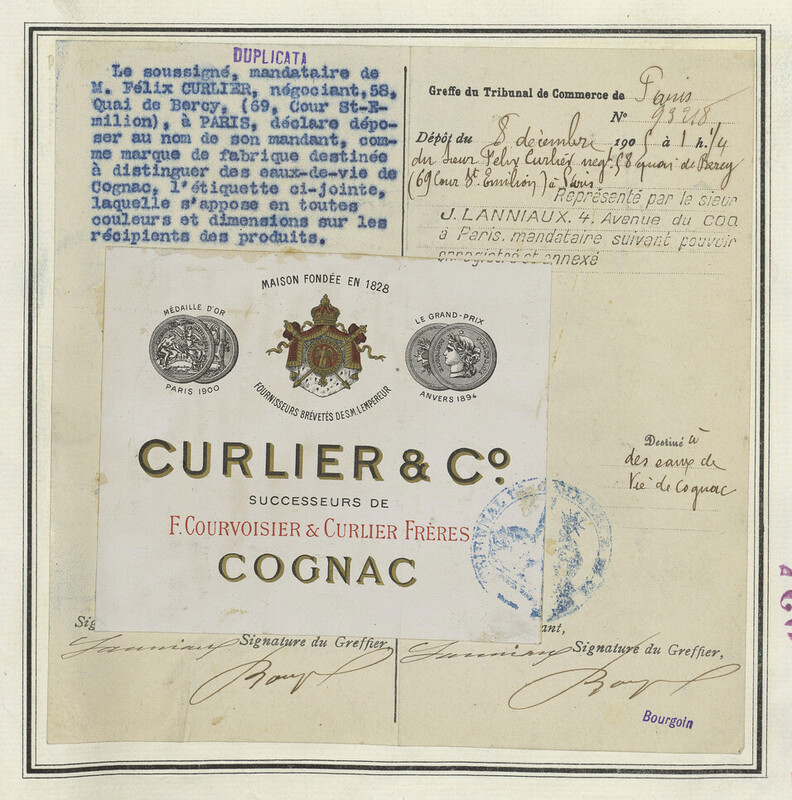 DUPLICATA
Le soussigné, mandataire de
M. Félix CURLIER, négociant,58,
Quai de Bercy, (69, Cour St-E-
milion), à PARIS, déclare dépo-
ser au nom de son mandant, com-
me marque de fabrique destinée
à distinguer des eaux-de-vie de
Cognac, l'étiquette ci-jointe,
laquelle s'appose en toutes
couleurs et dimensions sur les
récipients des produits.
Greffe du Tribunal de Commerce de Paris
N° 93218
Dépôt du 8 décembre 1905 à 1 h. 1/4
du sieur Felix Curlier negt 58 quai de Bercy
(69 Cour St Emilion) à Paris
Représenté par le sieur
J. LANNIAUX. 4, Avenue du COQ
à Paris. mandataire suivant pouvoir
enregistré et annexé
MAISON FONDÉE EN 1828
MÉDAILLE D'OR
PARIS 1900
LE GRAND-PRIX
ANVERS 1894
FOURNISSEURS BRÉVETÉS DE S.M. L'EMPEREUR
CURLIER & Co.
SUCCESSEURS DE
F. COURVOISIER & CURLIER FRÈRES
COGNAC
Destiné à
des eaux de
Vie de Cognac
Sig
ant,
Signature du Greffier,
Signature du Greffier,
Lanniaux
Lanniaux
Bourgoin